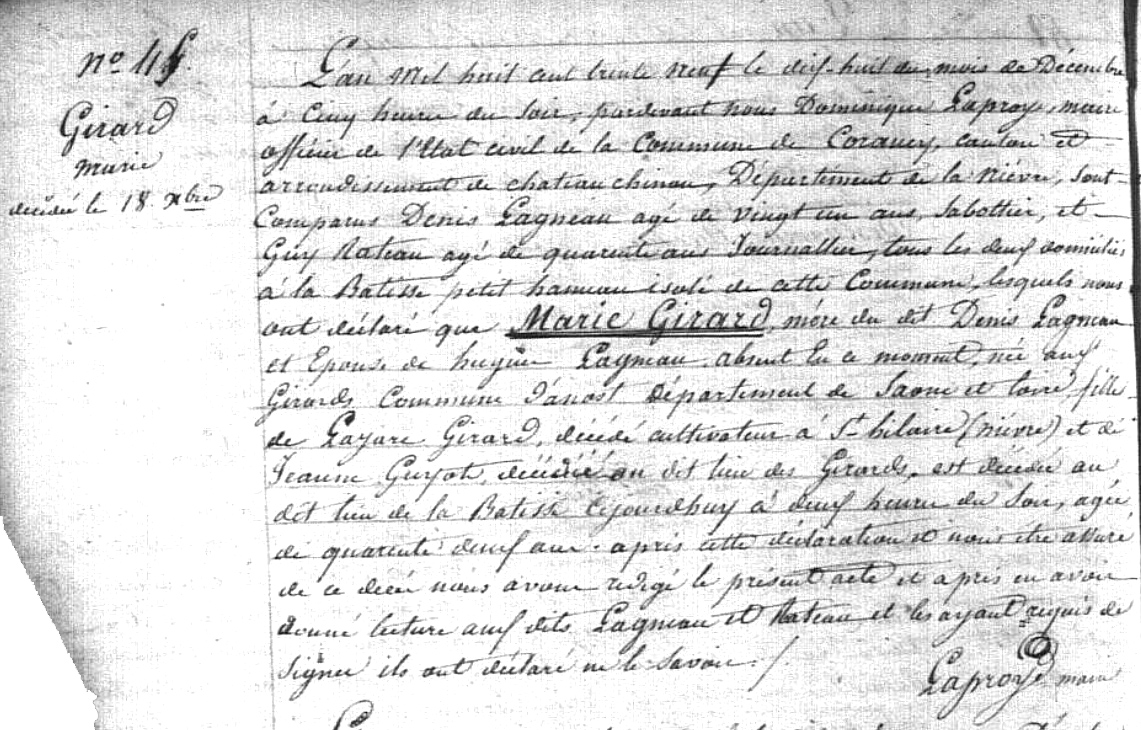 n° 45.
Girard
Marie
décédée le 18 xbre
L'an Mil huit cent trente neuf le dix-huit du mois de Décembre
à Cinq heure du Soir, pardevant nous Dominique Laproye, maire
officier de l'Etat civil de la Commune de Corancy, canton et
arrondissement de chateau chinon, Département de la Nièvre, Sont
Comparus Denis Lagneau agé de vingt un ans, Sabottier, et
Guy Rateau agé de quarente ans Journallier, tous les deux domiciliés
à la Batisse petit hameau isolé de cette Commune, lesquels nous
ont déclaré que Marie Girard, mère du dit Denis Lagneau
et Epouse de hugue Lagneau absent En ce moment, née aux
Girards Commune d'anost Département de Saone et loire, fille
de Lazare Girard, décédé cultivateur à St hilaire (nièvre) et de
Jeanne Guyot, décédée au dit lieu des Girards, est décédée au
dit lieu de la Batisse Cejourdhuy à deux heure du Soir, agée
de quarente deux ans. après cette déclaration et nous être assuré
de ce décès nous avons redigé le présent acte et après en avoir
donné lecture aux dits Lagneau et Rateau et les ayant requis de
Signer ils ont déclaré ne le Savoir ./.
Laproye maire